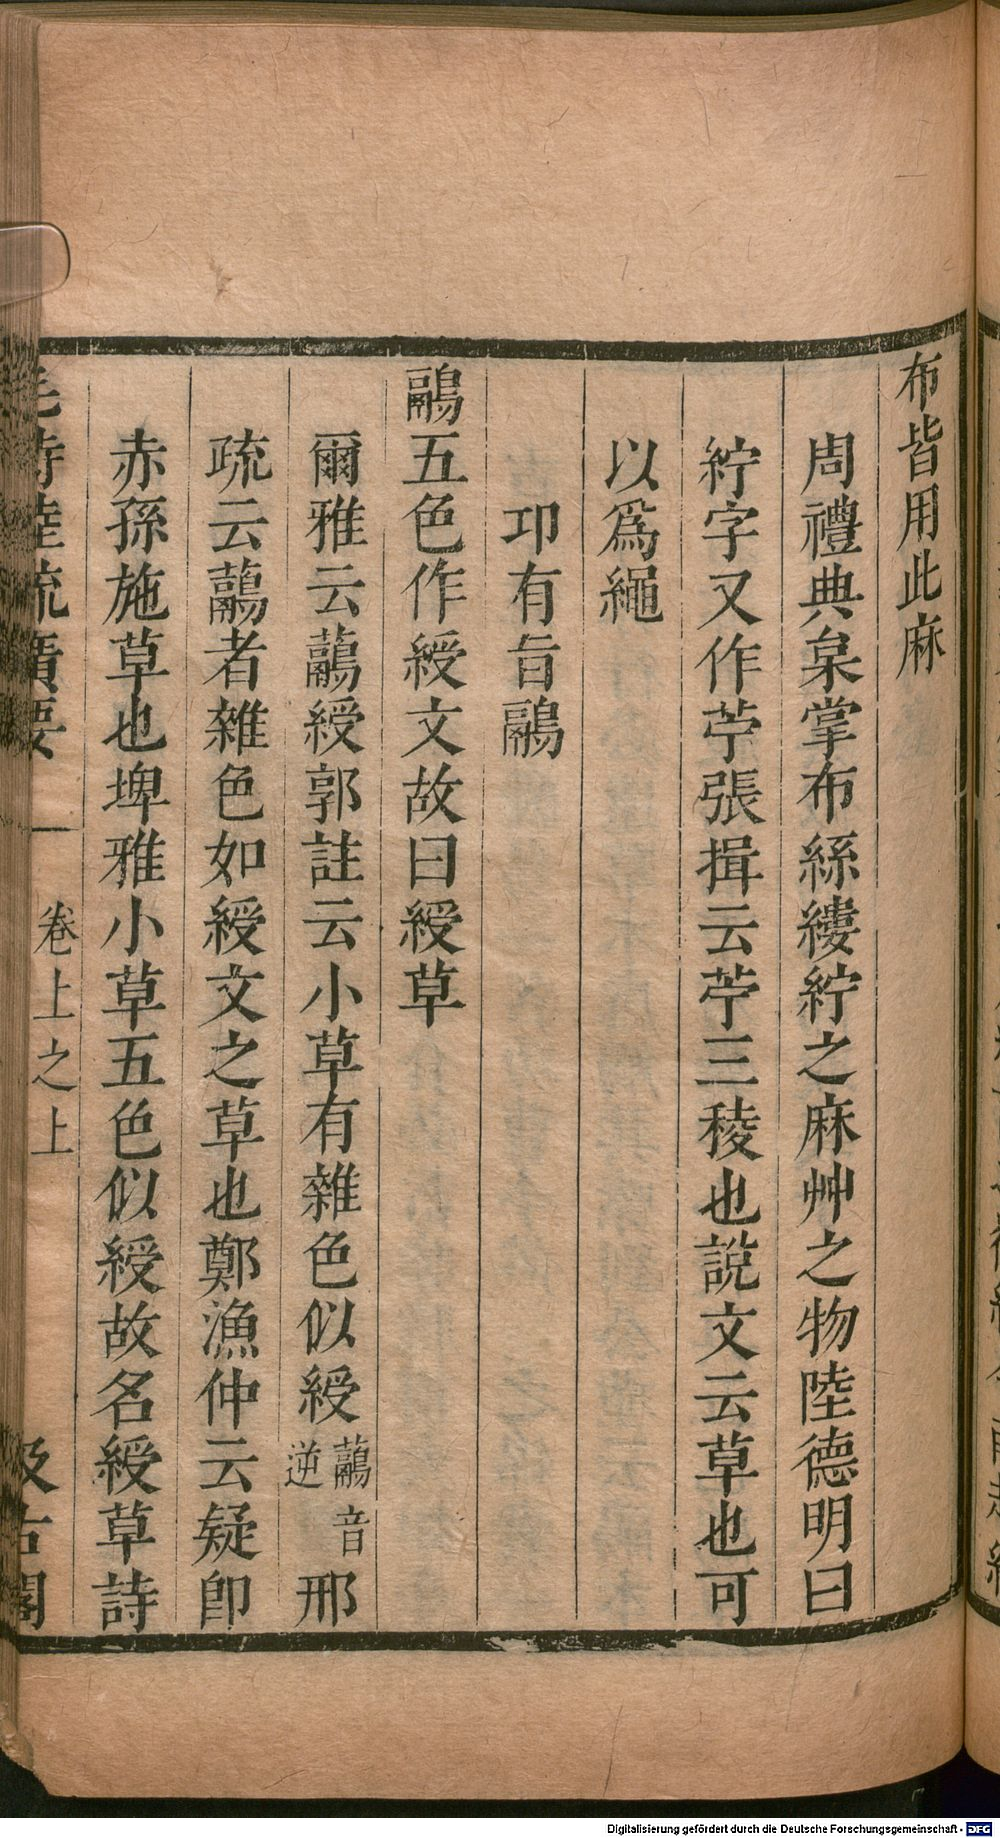 布皆用此麻
周禮典枲掌布絲縷紵之麻艸之物陸德明曰
紵字又作苧張揖云苧三稜也說文云草也可
以爲繩
卭有旨鷊
鷊五色作綬文故曰綬草
爾雅云虉綬郭註云小草有雜色似綬虉音逆邢
疏云虉者雜色如綬文之草也鄭漁仲云疑卽
赤孫施草也埤雅小草五色似綬故名綬草詩
毛詩陸疏廣要 卷上之上 汲古閣
Digitalisierung gefördert durch die Deutsche Forschungsgemeinschaft - DFG